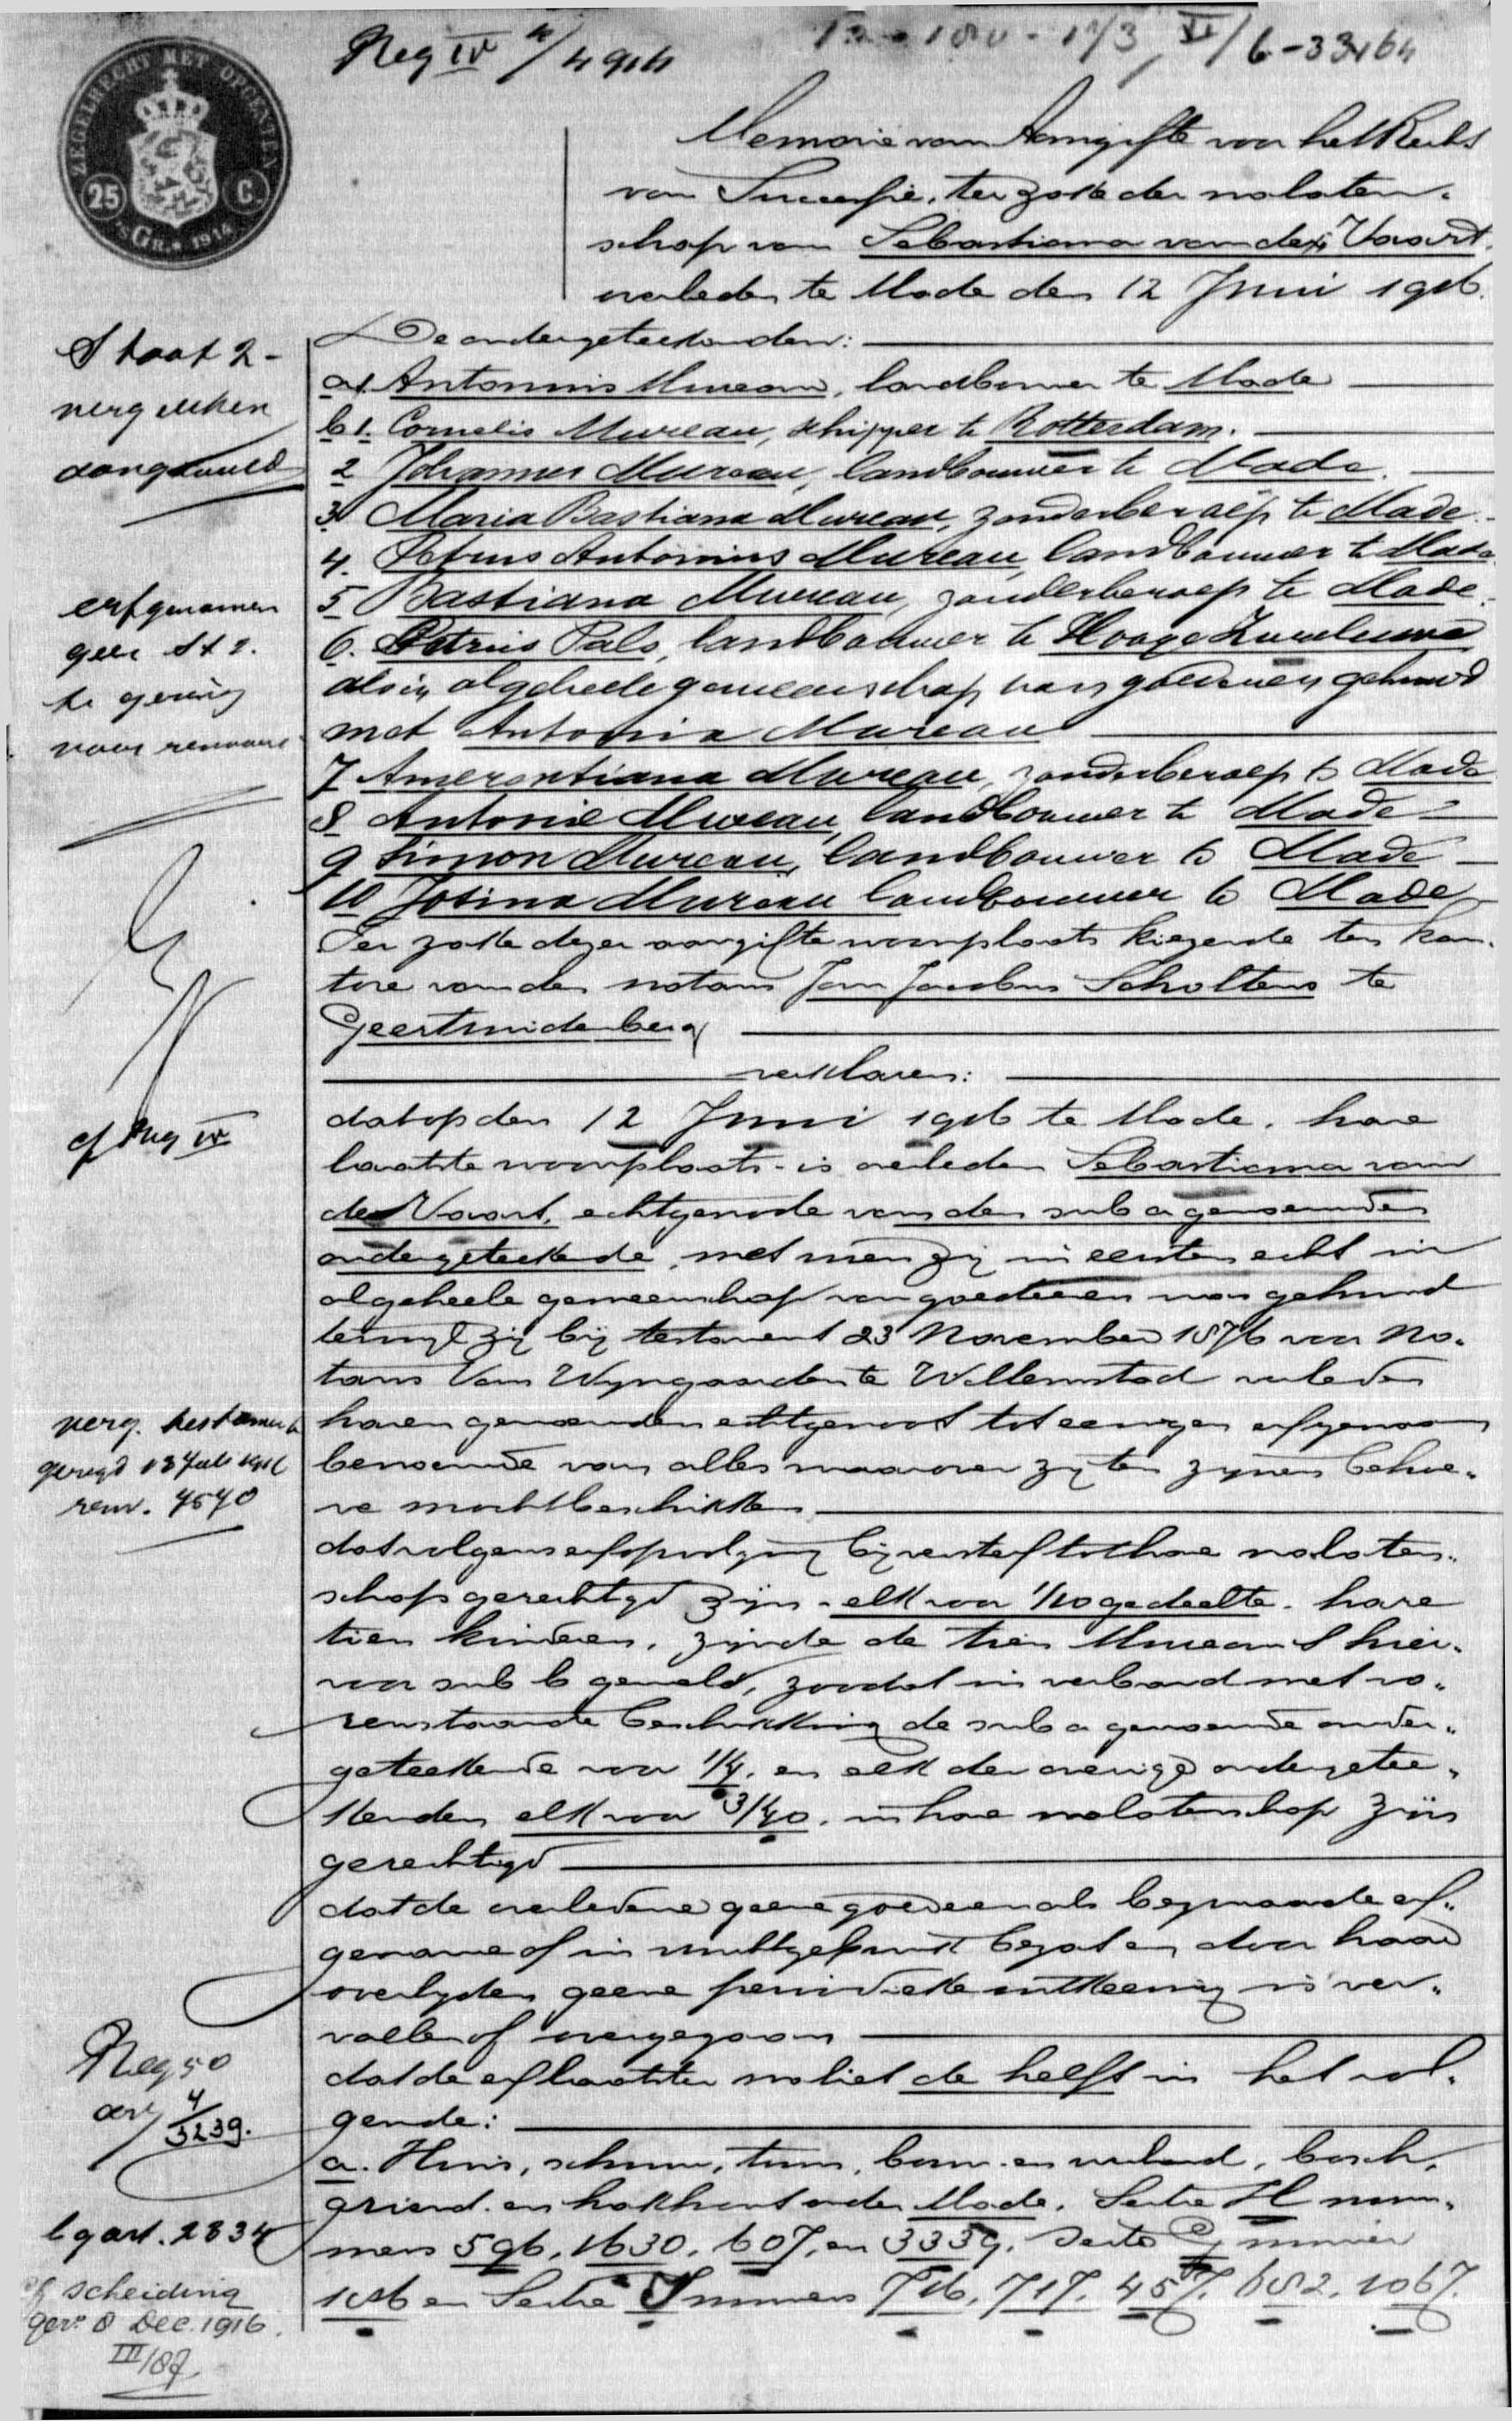 Reg IV 4/4914
6-33164
ZEGELRECHT MET OPCENTEN
25 C.
'S GR. 1914
Memorie van Aangifte voor het Recht
van Successie, ter zake der nalaten-
schap van Sebastiana van der Vaart,
overleden te Made den 12 Juni 1916.
De ondergeteekenden:
a1. Antonius Mureau, landbouwer te Made
b1. Cornelis Mureau, schipper te Rotterdam.
2 Johannes Mureau, landbouwer te Made.
3 Maria Bastiana Mureau, zonder beroep te Made.
4. Petrus Antonius Mureau, landbouwer te Made
5 Bastiana Mureau, zonder beroep te Made.
6. Petrus Pals, landbouwer te Hooge Zwaluwe
als in algeheele gemeenschap van goederen gehuwd
met Antonia Mureau
7 Amerentiana Mureau, zonder beroep te Made
8 Antonie Mureau, landbouwer te Made
9 Simon Mureau, landbouwer te Made
10 Josina Mureau landbouwer te Made
Ter zake dezer aangifte woonplaats kiezende ten kan-
tore van den notaris Jan Jacobus Scholtens te
Geertruidenberg
verklaren:
dat op den 12 Juni 1916 te Made, hare
laatste woonplaats is overleden Sebastiana van
der Vaart, echtgenoote van den sub a genoemden
ondergeteekende, met wien zij in eersten echt in
algeheele gemeenschap van goederen was gehuwd
terwijl zij bij testament 23 November 1876 voor No-
taris Van Wijngaarden te Willemstad verleden
haren genoemden echtgenoot tot eenigen erfgenaam
benoemde van alles waarover zij ten zijnen behoe-
ve mocht beschikken
dat volgens erfopvolging bij versterf tot hare nalaten-
schap gerechtigd zijn - elk voor 1/10 gedeelte - hare
tien kinderen, zijnde de tien Mureau's hier-
voor sub b gemeld, zoodat in verband met vo-
renstaande beschikking de sub a genoemde onder-
geteekende voor 1/4, en elk der overige ondergetee-
kenden elk voor 3/40, in hare nalatenschap zijn
gerechtigd
dat de overledene geene goederen als bezwaarde erf-
gename of in vruchtgebruik bezat en door haar
overlijden geene periodieke uitkeering is ver-
vallen of overgegaan
dat de erflaatster naliet de helft in het vol-
gende:
a. Huis, schuur, tuin, bouw- en weiland, bosch,
griend en hakhout onder Made, Sectie H num-
mers 596, 1630, 607, en 3339, Sectie G nummer
1016 en Sectie I nummers 716, 717, 457, 682, 1067.
Staat 2 -
vergeleken
aangevuld
erfgenamen
geen St 2.
te gering
voor
cf Reg IV
verg. testament
geregd 13 Juli 1916
renv. 4540
Reg 50
art 4/3239.
lg art. 2834
cf scheiding
ger. 8 Dec. 1916.
III/87.